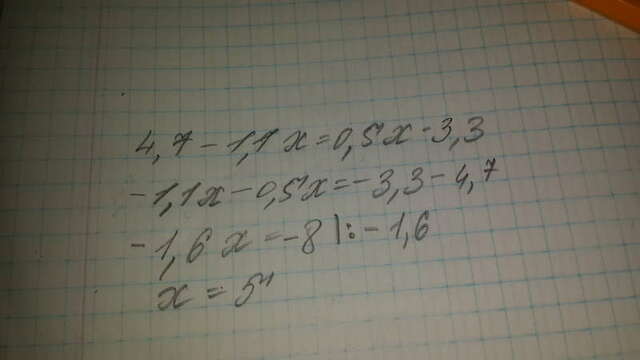 4,7 - 1,1x = 0,5x - 3,3
-1,1x - 0,5x = -3,3 - 4,7
-1,6x = -8 |: -1,6
x = 5